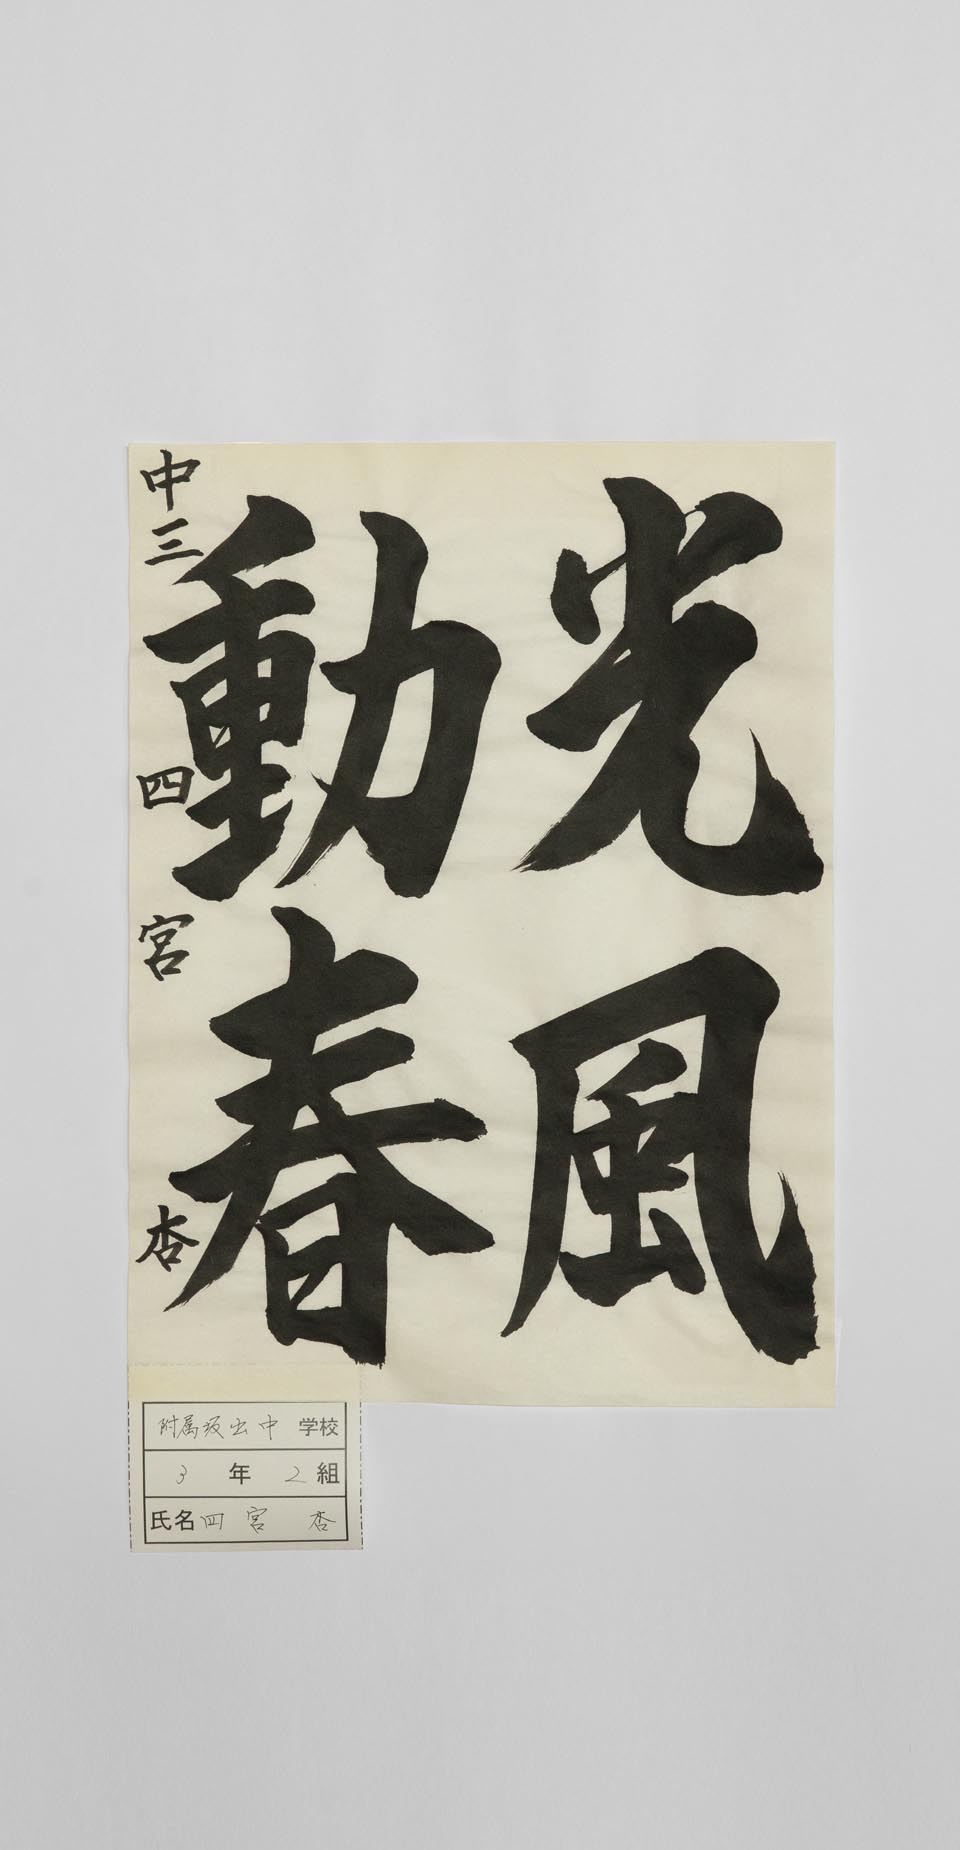 光風
動春
中三 四宮 杏
附属坂出中 学校
3 年 2 組
氏名 四宮 杏